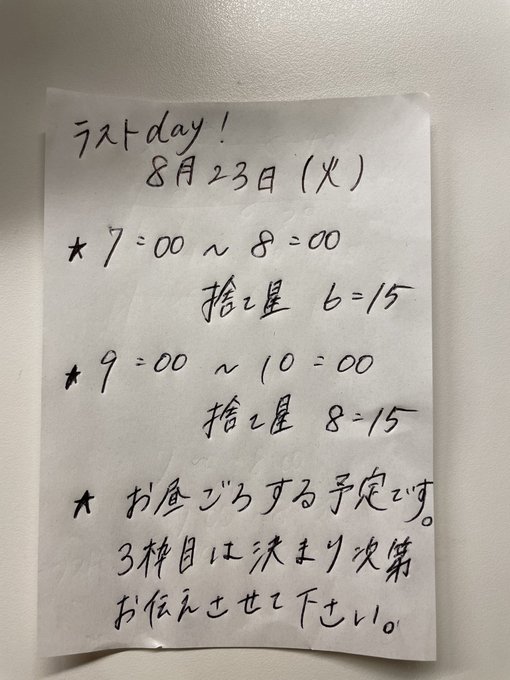 ラストday!
8月23日(火)
★ 7:00 ~ 8:00
捨て星 6:15
★ 9:00 ~ 10:00
捨て星 8:15
★ お昼ごろする予定です。
3枠目は決まり次第
お伝えさせて下さい。